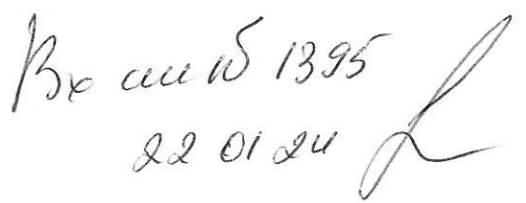 Вх 1395
22 01 24